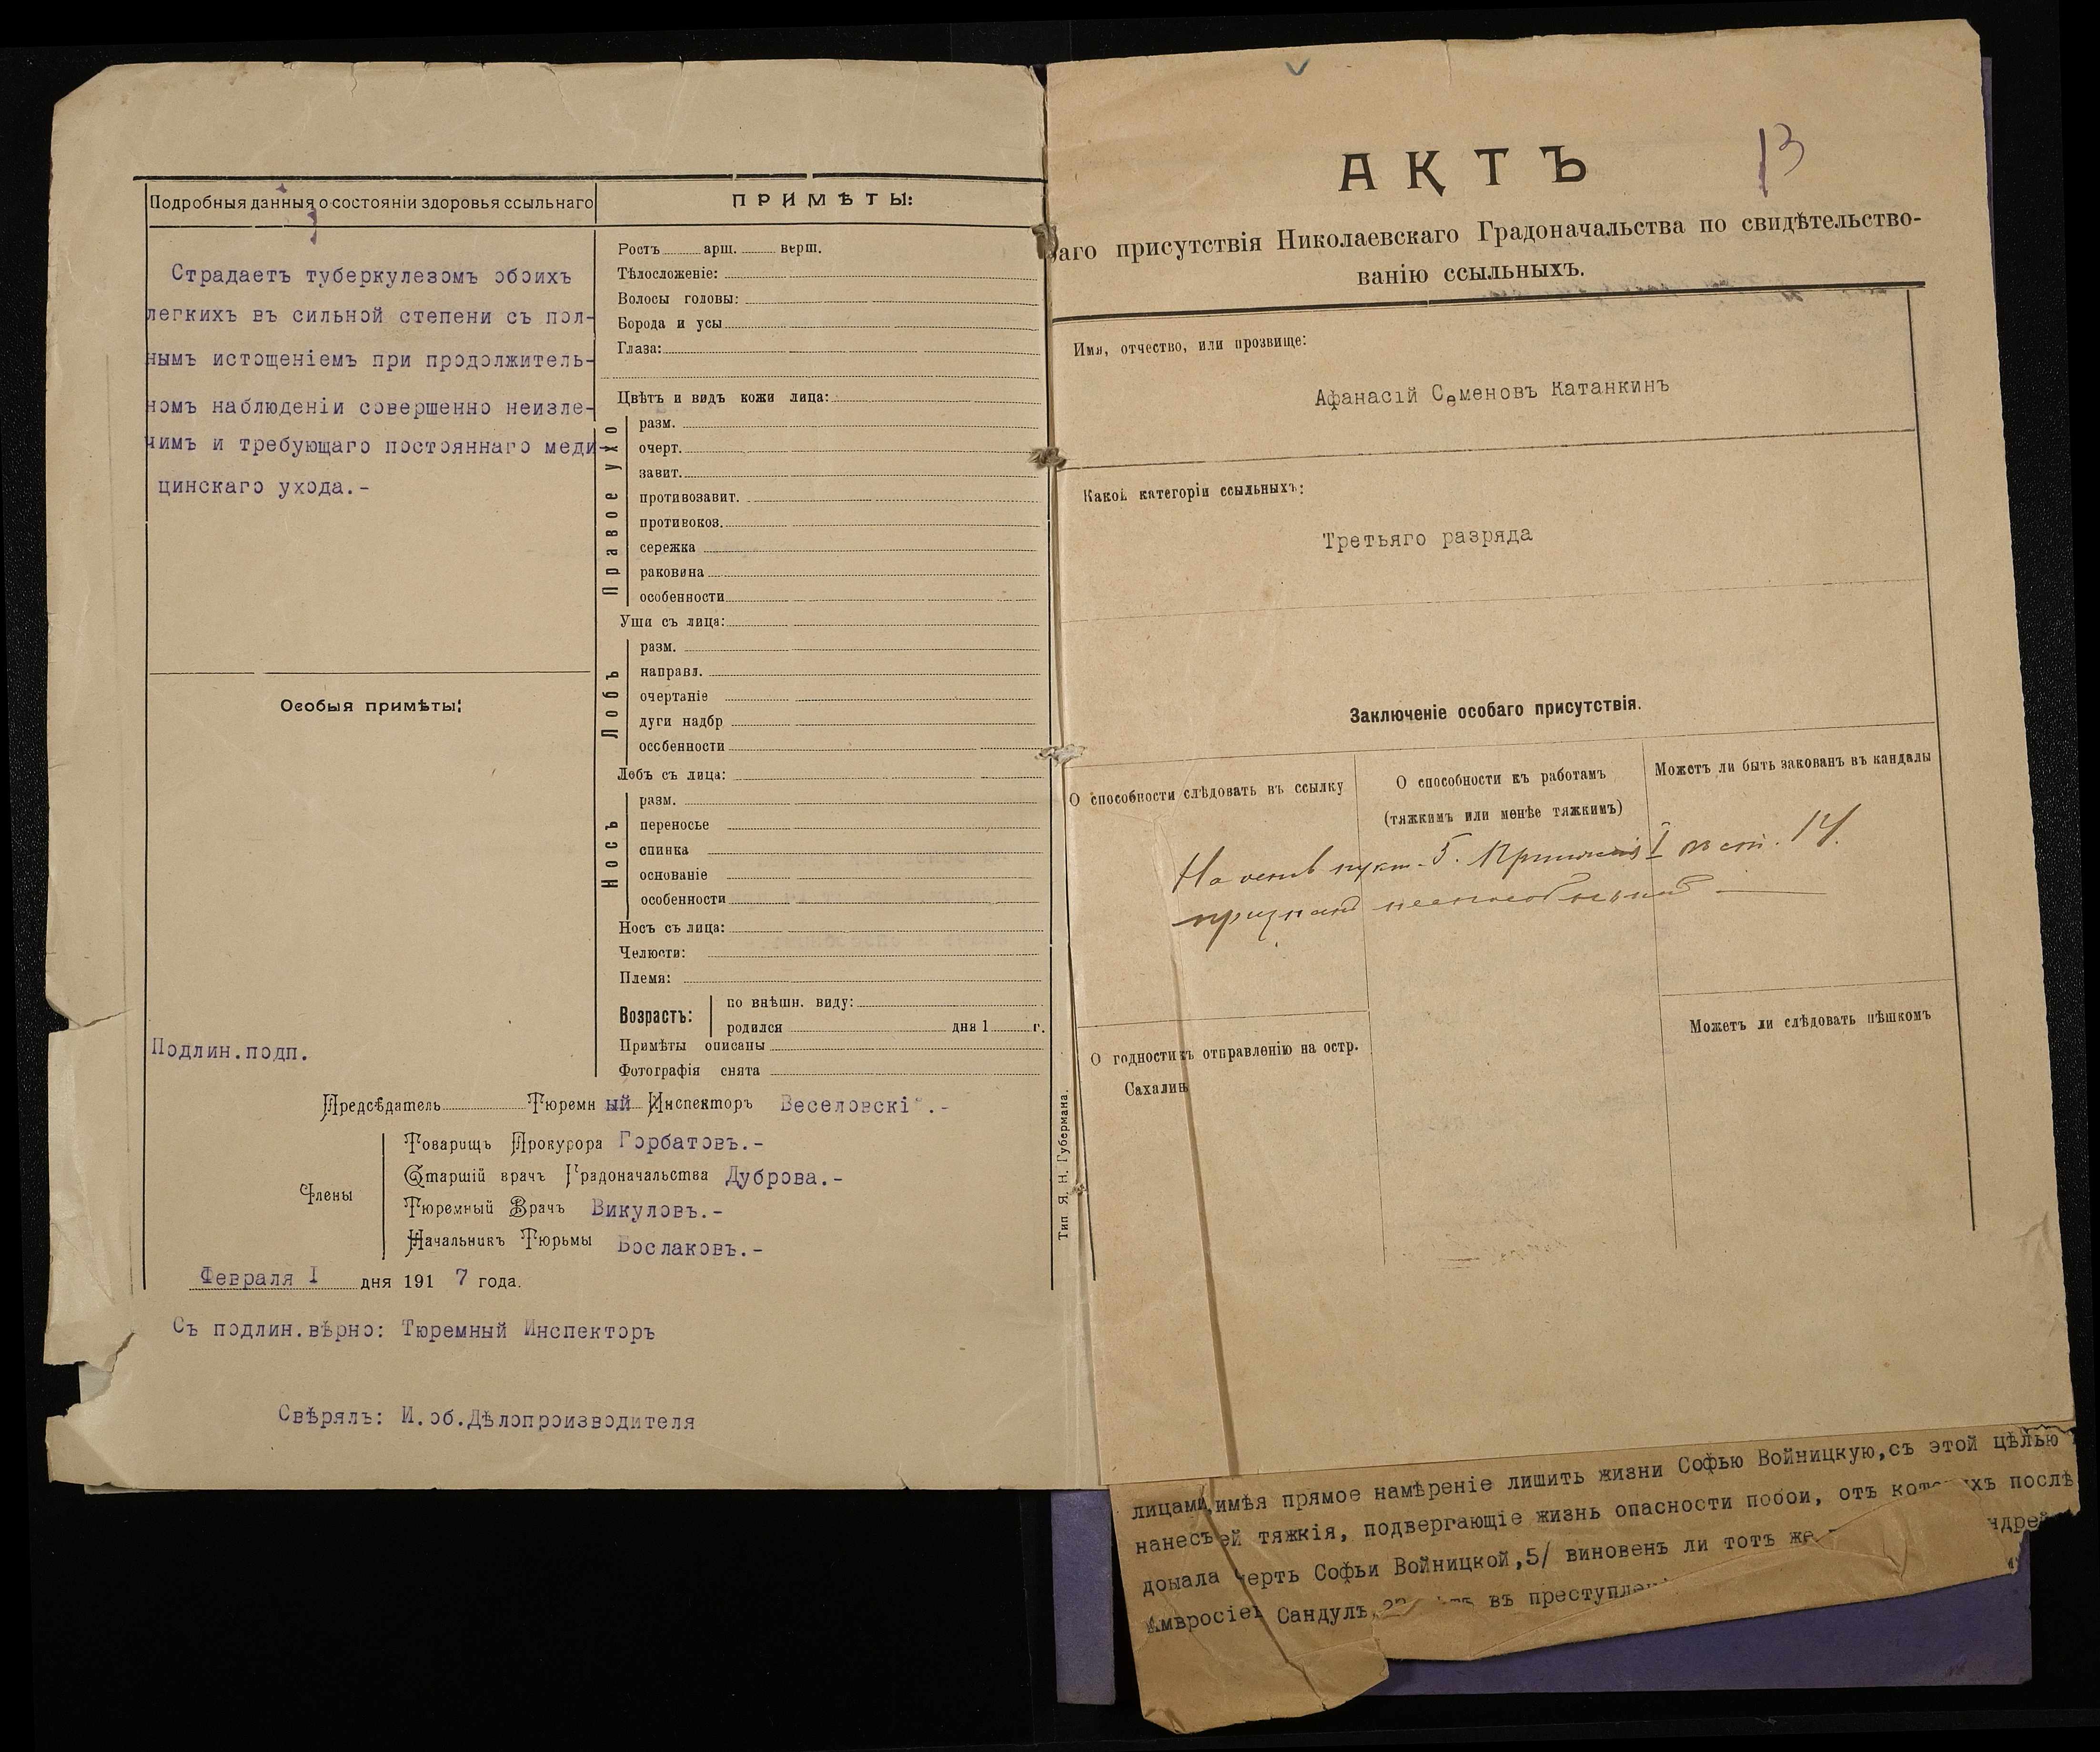 Подробныя данныя о состояніи здоровья ссыльнаго
Страдаетъ туберкулезомъ обоихъ
легкихъ въ сильной степени съ пол-
нымъ истощеніемъ при продолжитель-
номъ наблюденіи совершенно неизле-
чимъ и требующаго постояннаго меди
цинскаго ухода.-
Особыя примѣты:
Подлин.подп.
ПРИМѢТЫ:
Ростъ арш. верш.
Тѣлосложеніе:
Волосы головы:
Борода и усы
Глаза:
Цвѣтъ и видъ кожи лица:
Правое ухо
разм.
очерт.
завит.
противозавит.
противокоз.
сережка
раковина
особенности
Уши съ лица:
Лобъ
разм.
направл.
очертаніе
дуги надбр
особенности
Лобъ съ лица:
Носъ
разм.
переносье
спинка
основаніе
особенности
Носъ съ лица:
Челюсти:
Племя:
Возрастъ:
по внѣшн. виду:
родился дня 1 г.
Примѣты описаны
Фотографія снята
Предсѣдатель Тюремный Инспекторъ Веселовскі .-
Члены
Товарищъ Прокурора Горбатовъ.-
Старшій врачъ Градоначальства Дуброва.-
Тюремный Врачъ Викуловъ.-
Начальникъ Тюрьмы Бослаковъ.-
Февраля I дня 1917 года.
Съ подлин.вѣрно: Тюремный Инспекторъ
Свѣрялъ: И.об.Дѣлопроизводителя
Тип Я. Н. Губермана.
13
АКТЪ
аго присутствія Николаевскаго Градоначальства по свидѣтельство-
ванію ссыльныхъ.
Имя, отчество, или прозвище:
Афанасій Семеновъ Катанкинъ
Какой категоріи ссыльныхъ:
Третьяго разряда
Заключеніе особаго присутствія.
О способности слѣдовать въ ссылку
О способности къ работамъ
(тяжкимъ или менѣе тяжкимъ)
Можетъ ли быть закованъ въ кандалы
На основ пункт. 5. I въ ст. 14.
признанъ неспособнымъ
О годности къ отправленію на остр.
Сахалинъ
Можетъ ли слѣдовать пѣшкомъ
лицами,имѣя прямое намѣреніе лишить жизни Софью Войницкую,съ этой цѣлью
нанесъ ей тяжкія, подвергающіе жизнь опасности побои, отъ которыхъ послѣ
довала смерть Софьи Войницкой,5/ виновенъ ли тотъ же
Амвросіевъ Сандулъ, въ